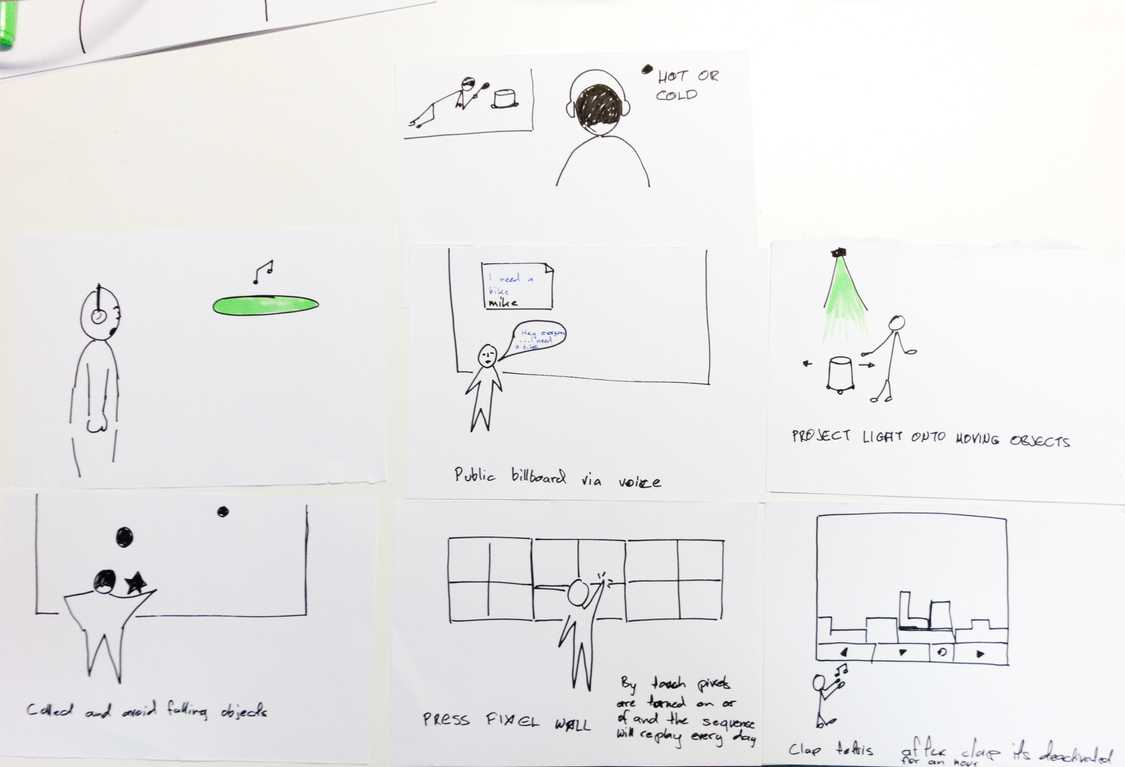 HOT OR
COLD
I need a
bike
mike
Public billboard via voice
PROJECT LIGHT ONTO MOVING OBJECTS
Collect and avoid falling objects
PRESS PIXEL WALL
By touch pixels
are turned on or
of and the sequence
will replay every day
Clap tetris after clap its deactivated
for an hour